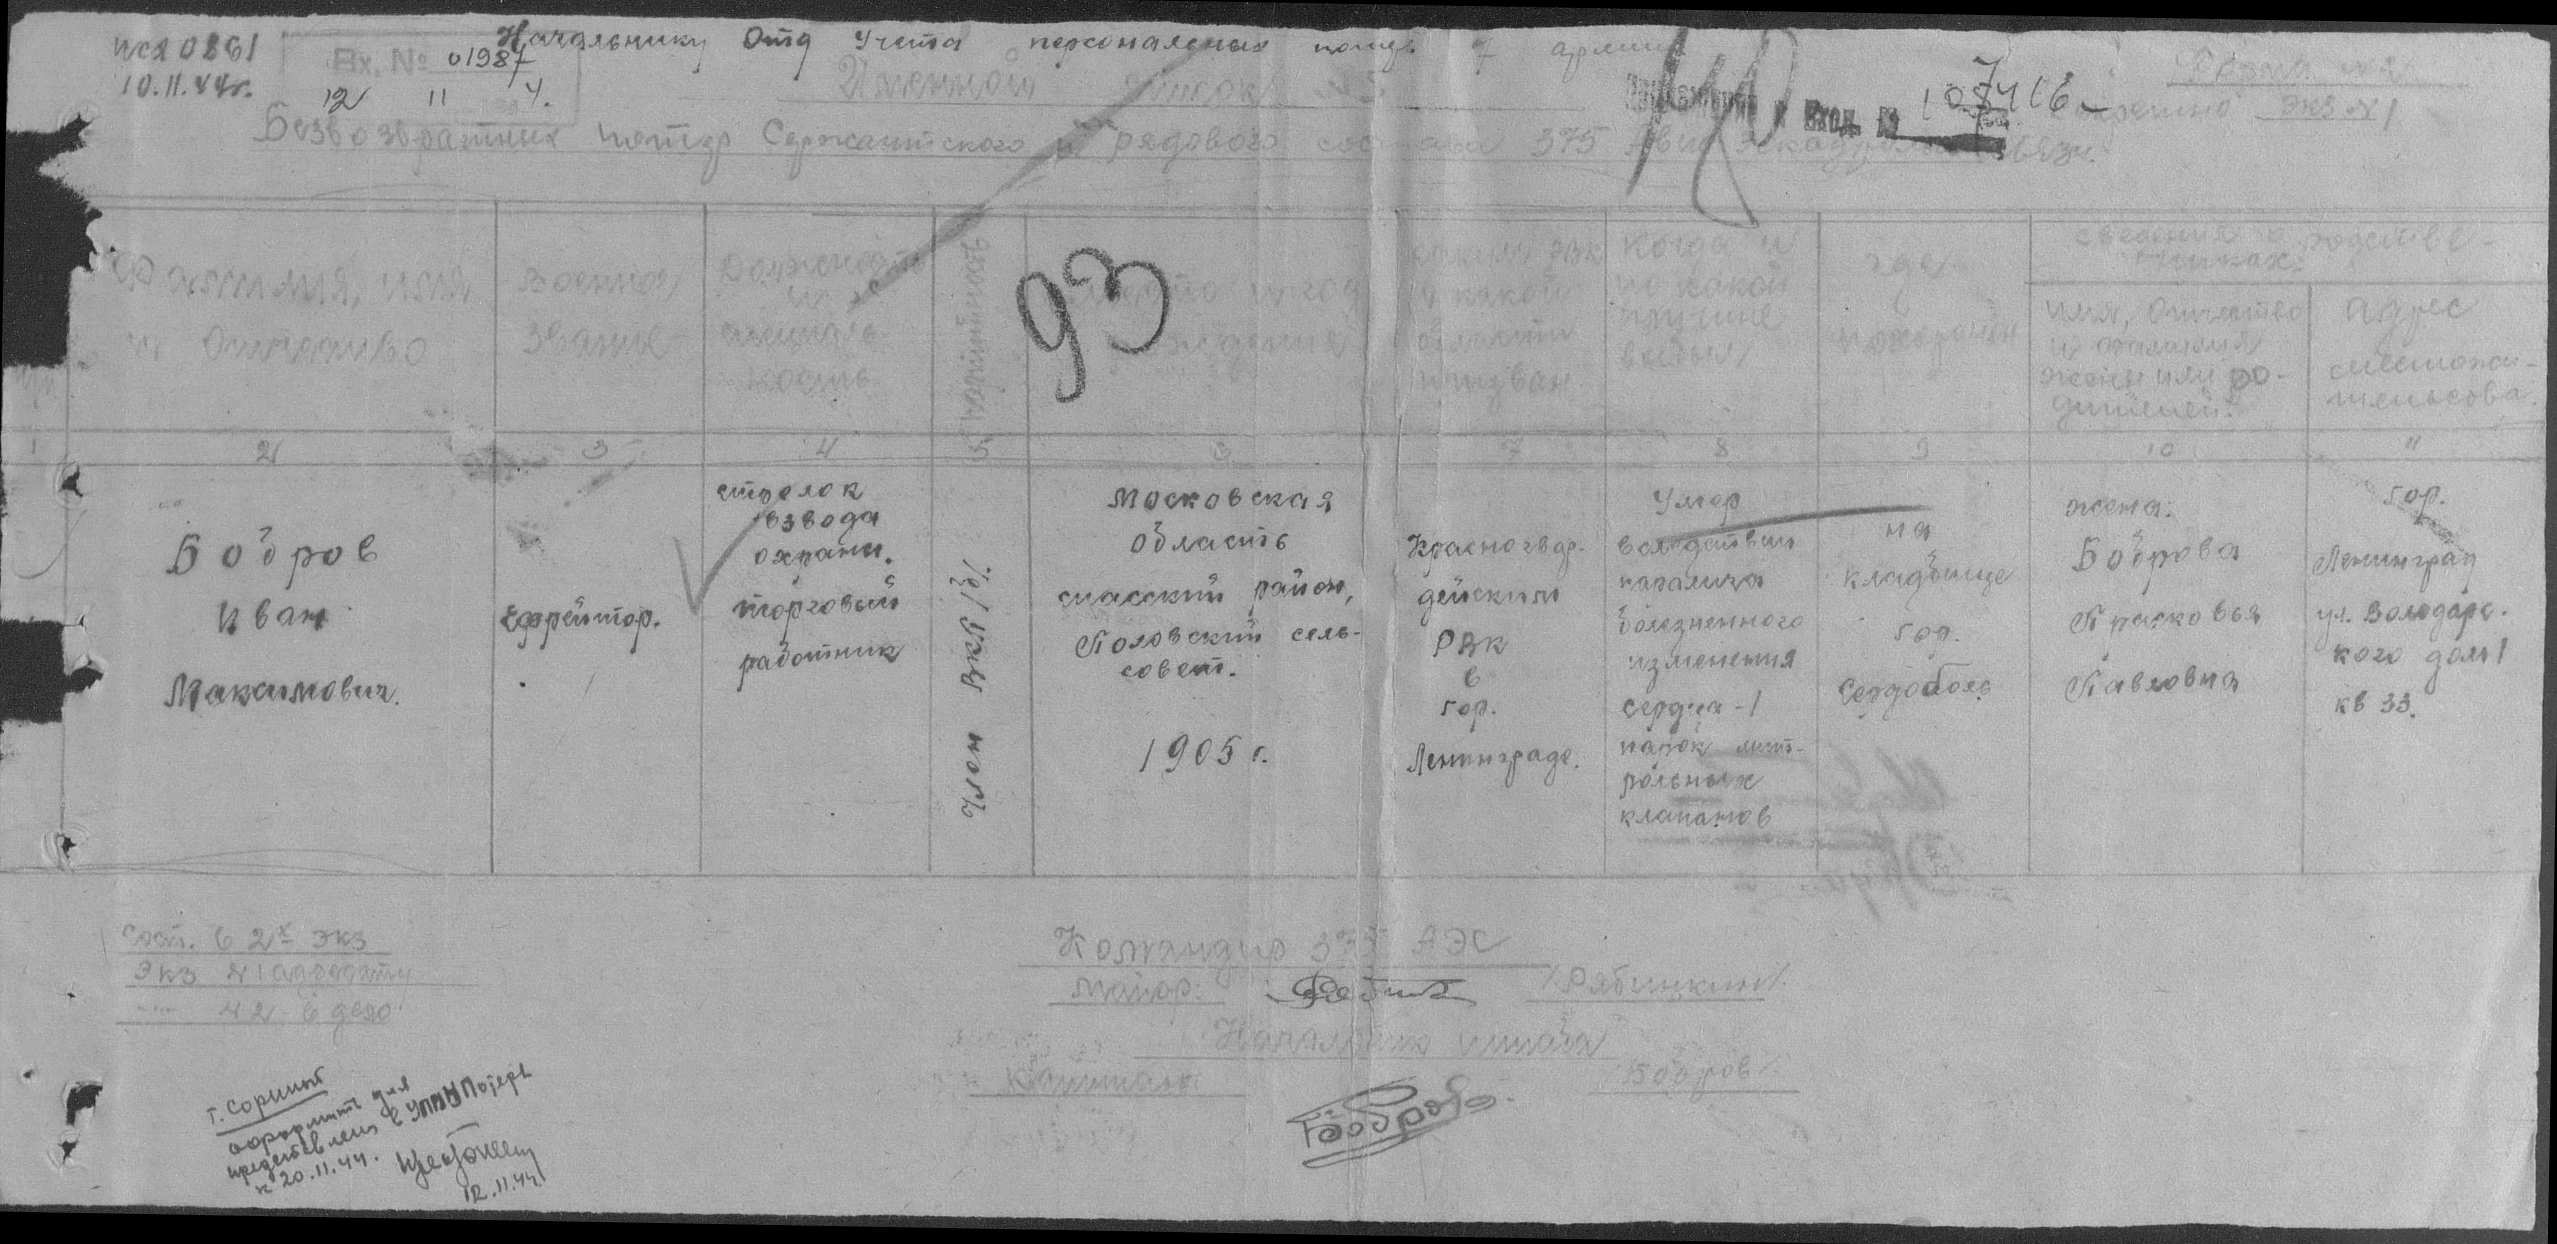 исх 0861
10.11.44г.
Вх. № 01987
12 11 4.
Начальнику Отд Учета персональных потерь 7 армии
Именной список
Форма №2
Вход. 107416
Секретно экз №1
Безвозвратных потерь Сержантского и рядового состава 375 Авиа Эскадрильи связи.
93
Фамилия, имя
и Отчество
Военное
звание
Должность
и
специаль-
ность
Партийность
Место и год
рождения
каким РВК
и какой
области
призван
Когда и
по какой
причине
выбыл
где
похоронен
сведения о родствен-
никах
имя, Отчество
и фамилия
жены или ро-
дителей.
Адрес
местожи-
тельства.
1 2 3 4 5 6 7 8 9 10 11
Бобров
Иван
Максимович.
Ефрейтор.
стрелок
взвода
охраны.
торговый
работник
Член ВКП/б/.
Московская
область
спасский район,
Половский сель-
совет.
1905 г.
Красногвар-
дейским
РВК
в
гор.
Ленинграде.
Умер
вследствии
паралича
болезненного
изменения
сердца -
клапанов
на
кладбище
гор.
Сердоболь
жена.
Боброва
Прасковья
Павловна
гор.
Ленинград
ул. Володарс-
кого дом 1
кв 33.
Сост. в 2х экз
Экз №1 адресату
-"- №2 в дело
Командир 375 АЭС
Майор. /Рябицкий/.
Начальник штаба
Капитан /Бобров/.
Бобров
оформить для
представлен. в УПП Потерь
к 20.11.44.
12.11.44